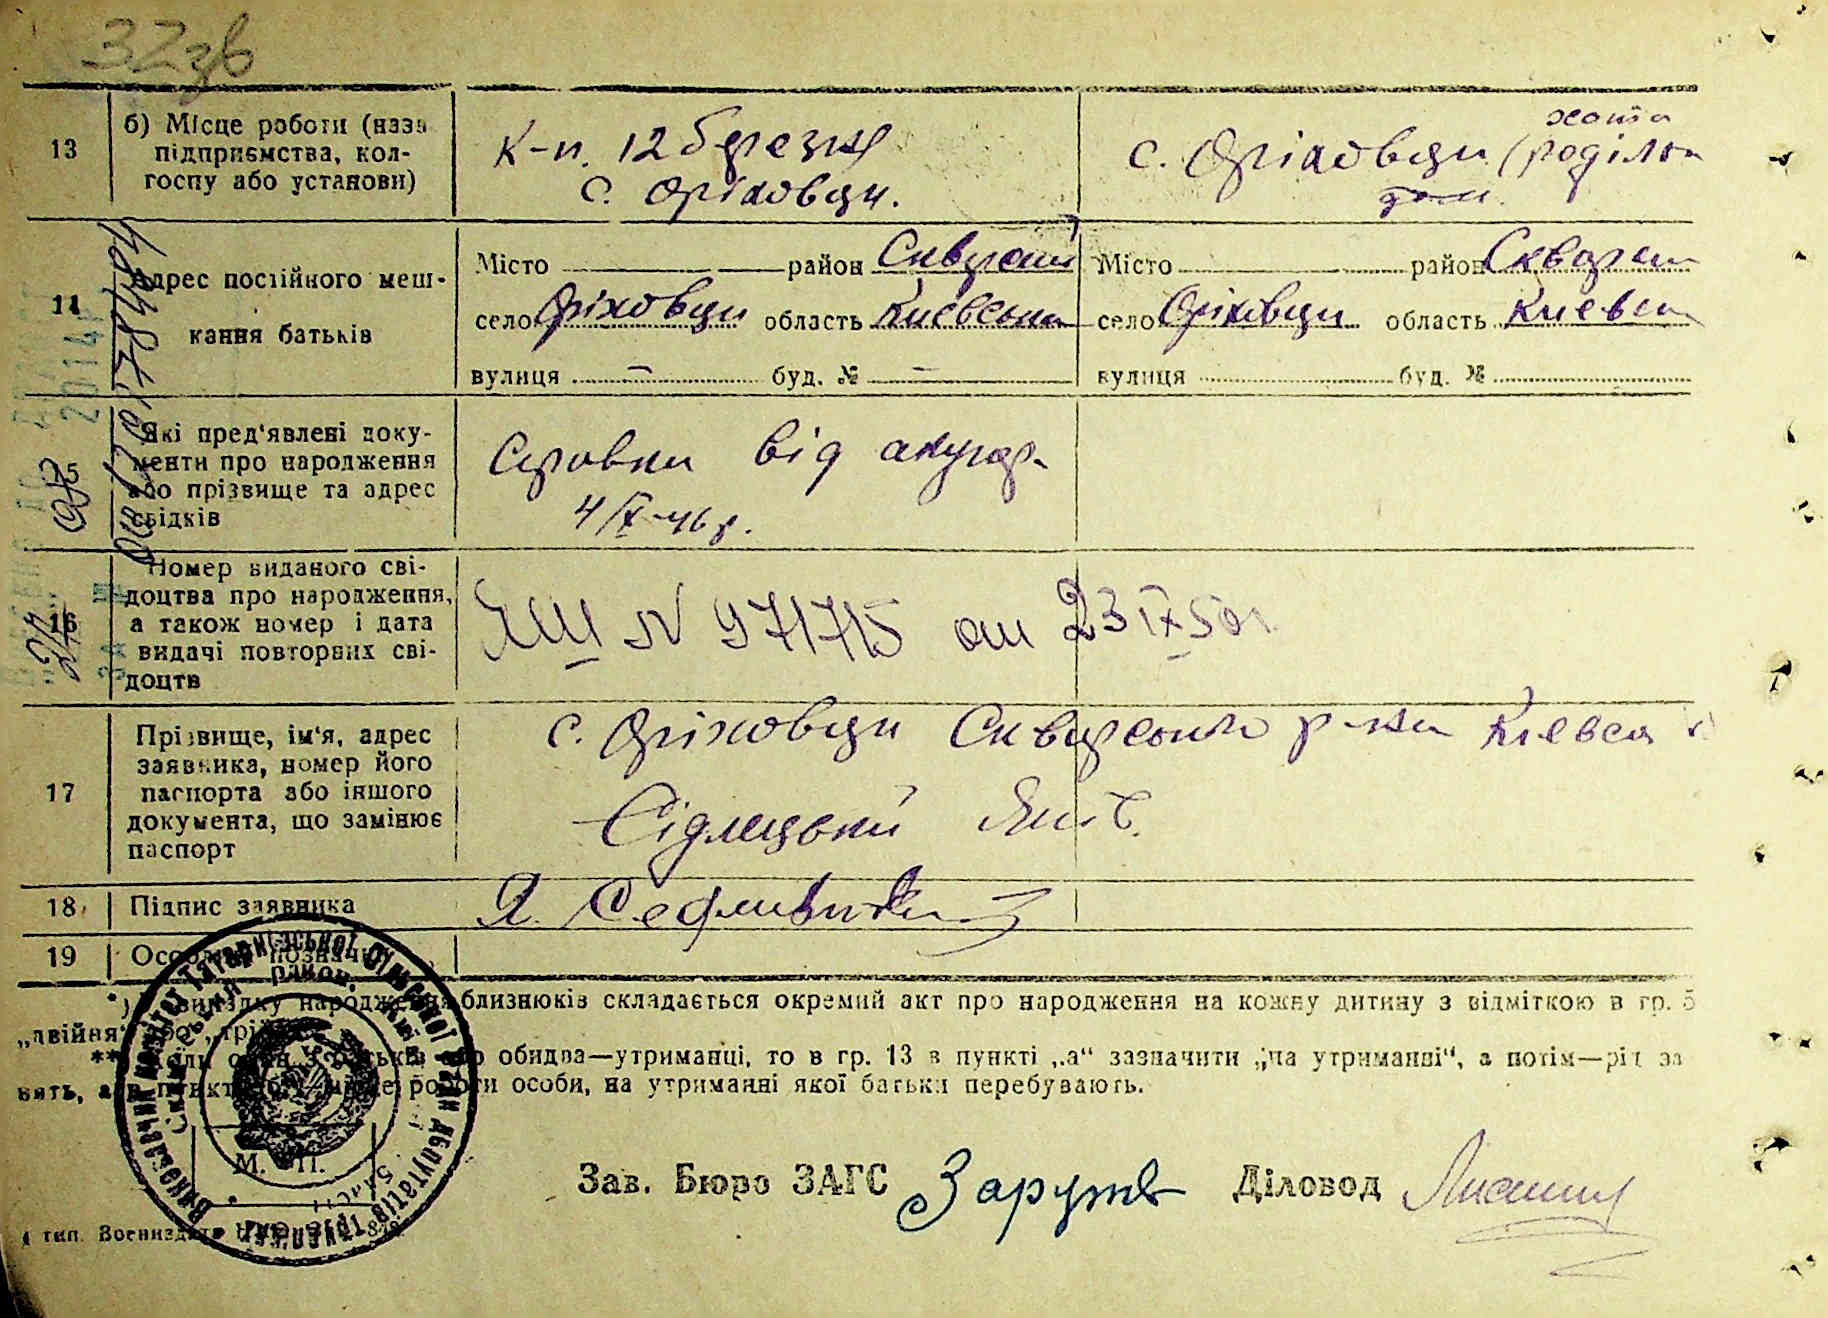 32зв
13
б) Місце роботи (назва
підприємства, кол-
госпу або установи)
к-п. 12 Березня
с. Оріховци.
хата
с. Оріховци (роділь
14
Адрес постійного меш-
кання батьків
Місто район Сквирский
село Оріховци область Киевська
вулиця — буд. № —
Місто район Сквирск
село Оріховци область Киевск
вулиця буд. №
15
Які пред'явлені доку-
менти про народження
або прізвище та адрес
свідків
Справка від акушер.
4/IX-46 р.
16
Номер виданого сві-
доцтва про народження,
а також номер і дата
видачі повторних сві-
доцтв
ЯШ № 971715 от 23 IX 50 г.
17
Прізвище, ім'я, адрес
заявника, номер його
паспорта або іншого
документа, що замінює
паспорт
с. Оріховци Сквирського р-на Киевск
Сідлецький
18
Підпис заявника
19
Особливі позначки
*) У випадку народження близнюків складається окремий акт про народження на кожну дитину з відміткою в гр. 5
„двійня“ або „трійня“.
** Коли один з батьків або обидва—утриманці, то в гр. 13 в пункті „а“ зазначити „на утриманні“, а потім—рід за
нять, а в пункті „б“ місце роботи особи, на утриманні якої батьки перебувають.
М. П.
Зав. Бюро ЗАГС
Діловод